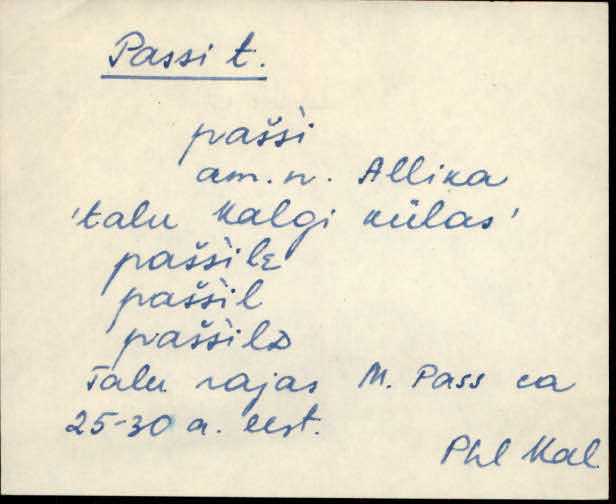 Passi t.
pašši
am. n. Allika
'talu Kalgi külas'
pašširle
paššil
paššilD
Talu rajas M. Pass ca
25-30 a. eest.
Phl Kal